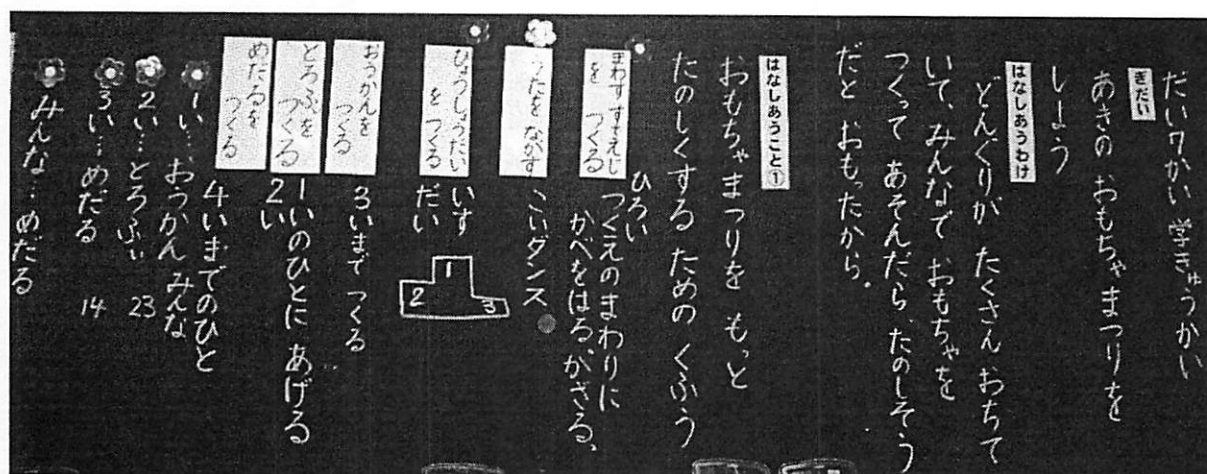 だい7かい 学きゅうかい
ぎだい
あきの おもちゃまつりを
しよう
はなしあうわけ
どんぐりが たくさん おちて
いて、みんなで おもちゃを
つくって あそんだら、たのしそう
だと おもったから。
はなしあうこと①
おもちゃまつりを もっと
たのしくする ための くふう
まわす すてえじ
を つくる
ひろい
つくえのまわりに
かべをはる、かざる、
うたを ながす
こいダンス
ひょうしょうだい
を つくる
いす
だい
1
2
3
おうかんを
つくる
3いまで つくる
とろふを
つくる
1いのひとに あげる
2い
めだるを
つくる
4いまでのひと
みんな
1い…おうかん
2い…とろふぃ 23
3い…めだる 14
みんな…めだる